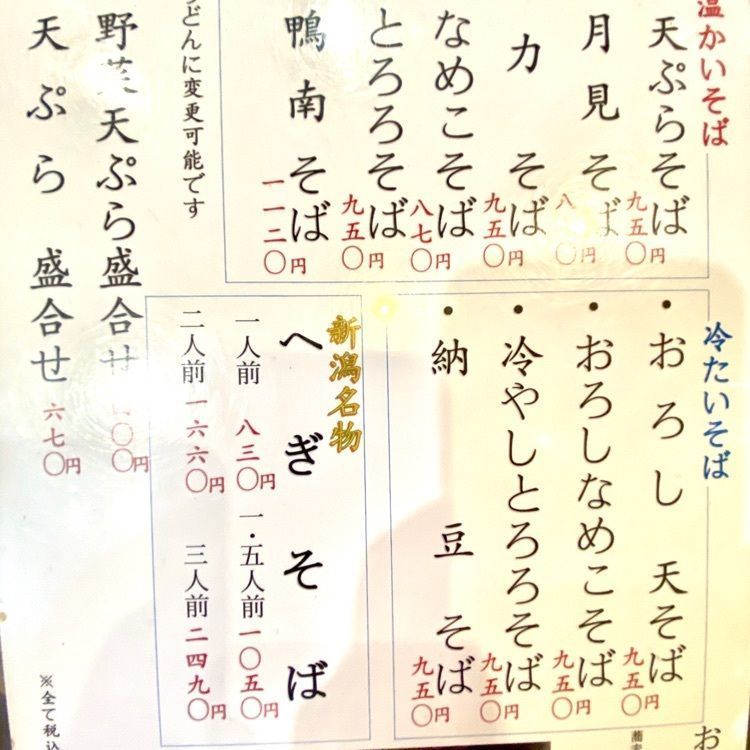 温かいそば
天ぷらそば 九五〇円
月見そば 八
力そば 九五〇円
なめこそば 八七〇円
とろろそば 九五〇円
鴨南そば 一一二〇円
うどんに変更可能です
野菜天ぷら盛合せ 〇〇円
天ぷら盛合せ 六七〇円
冷たいそば
・おろし天そば 九五〇円
・おろしなめこそば 九五〇円
・冷やしとろろそば 九五〇円
・納豆そば 九五〇円
新潟名物
へぎそば
一人前 八三〇円 一・五人前 一〇五〇円
二人前 一六六〇円 三人前 二四九〇円
※全て税込
お